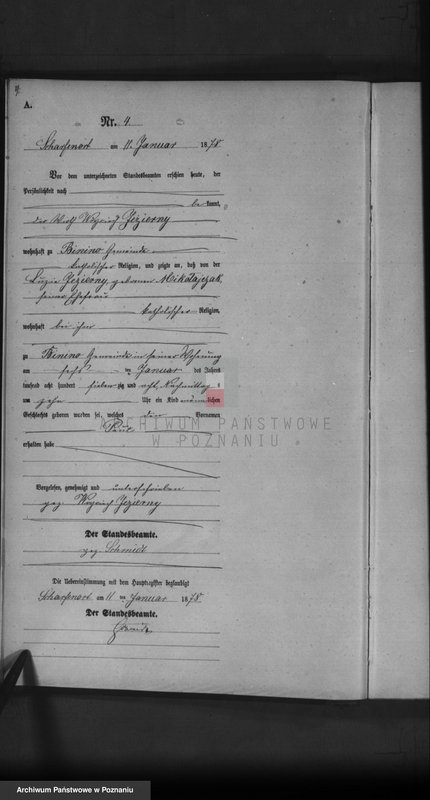 A.
Nr. 4.
Scharfenort am 11. Januar 1878
Vor dem unterzeichneten Standesbeamten erschien heute, der
Persönlichkeit nach
be kannt,
der Wirth Woyciech Jezierny
wohnhaft zu Binino Gemeinde
katholischer Religion, und zeigte an, daß von der
Luzia Jezierny, geborenen Mikolajczak,
seiner Ehefrau
katholischer Religion,
wohnhaft bei ihm
zu Binino Gemeinde in seiner Wohnung
am sechs ten Januar des Jahres
tausend acht hundert sieben zig und acht, Nachmittag s
um zehn Uhr ein Kind männlichen
Geschlechts geboren worden sei, welches den Vornamen
Paul
erhalten habe
Vorgelesen, genehmigt und unterschrieben
gez. Woyciech Jezierny
Der Standesbeamte.
gez. Schmidt
Die Uebereinstimmung mit dem Hauptregister beglaubigt
Scharfenort am 11 ten Januar 1878
Der Standesbeamte.
Schmidt
ARCHIWUM PAŃSTWOWE
W POZNANIU
Archiwum Państwowe w Poznaniu